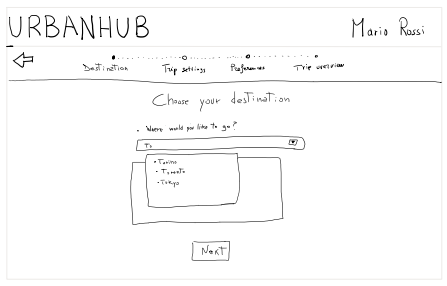 URBANHUB
Mario Rossi
Destination Trip settings Preferences Trip overview
Choose your destination
• Where would you like to go?
To
• Torino
• Toronto
• Tokyo
NEXT